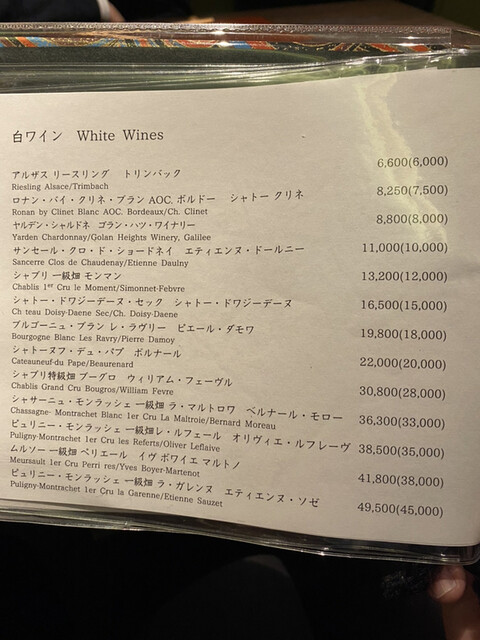 白ワイン White Wines
アルザス リースリング トリンバック 6,600(6,000)
Riesling Alsace/Trimbach
ロナン・バイ・クリネ・ブラン AOC. ボルドー シャトー クリネ 8,250(7,500)
Ronan by Clinet Blanc AOC. Bordeaux/Ch. Clinet
ヤルデン・シャルドネ ゴラン・ハツ・ワイナリー 8,800(8,000)
Yarden Chardonnay/Golan Heights Winery, Galilee
サンセール・クロ・ド・ショードネイ エティエンヌ・ドールニー 11,000(10,000)
Sancerre Clos de Chaudenay/Etienne Daulny
シャブリ 一級畑 モンマン 13,200(12,000)
Chablis 1er Cru le Moment/Simonnet-Febvre
シャトー・ドワジーデーヌ・セック シャトー・ドワジーデーヌ 16,500(15,000)
Ch teau Doisy-Daene Sec/Ch. Doisy-Daene
ブルゴーニュ・ブラン レ・ラヴリー ピエール・ダモワ 19,800(18,000)
Bourgogne Blanc Les Ravry/Pierre Damoy
シャトーヌフ・デュ・パプ ボルナール 22,000(20,000)
Cateauneuf-du Pape/Beaurenard
シャブリ特級畑 ブーグロ ウィリアム・フェーヴル 30,800(28,000)
Chablis Grand Cru Bougros/William Fevre
シャサーニュ・モンラッシェ 一級畑 ラ・マルトロワ ベルナール・モロー 36,300(33,000)
Chassagne- Montrachet Blanc 1er Cru La Maltroie/Bernard Moreau
ピュリニー・モンラッシェ 一級畑レ・ルフェール オリヴィエ・ルフレーヴ 38,500(35,000)
Puligny-Montrachet 1er Cru les Referts/Oliver Leflaive
ムルソー 一級畑 ペリエール イヴ ボワイエ マルトノ 41,800(38,000)
Meursault 1er Cru Perri res/Yves Boyer-Martenot
ピュリニー・モンラッシェ 一級畑 ラ・ガレンヌ エティエンヌ・ソゼ 49,500(45,000)
Puligny-Montrachet 1er Cru la Garenne/Etienne Sauzet